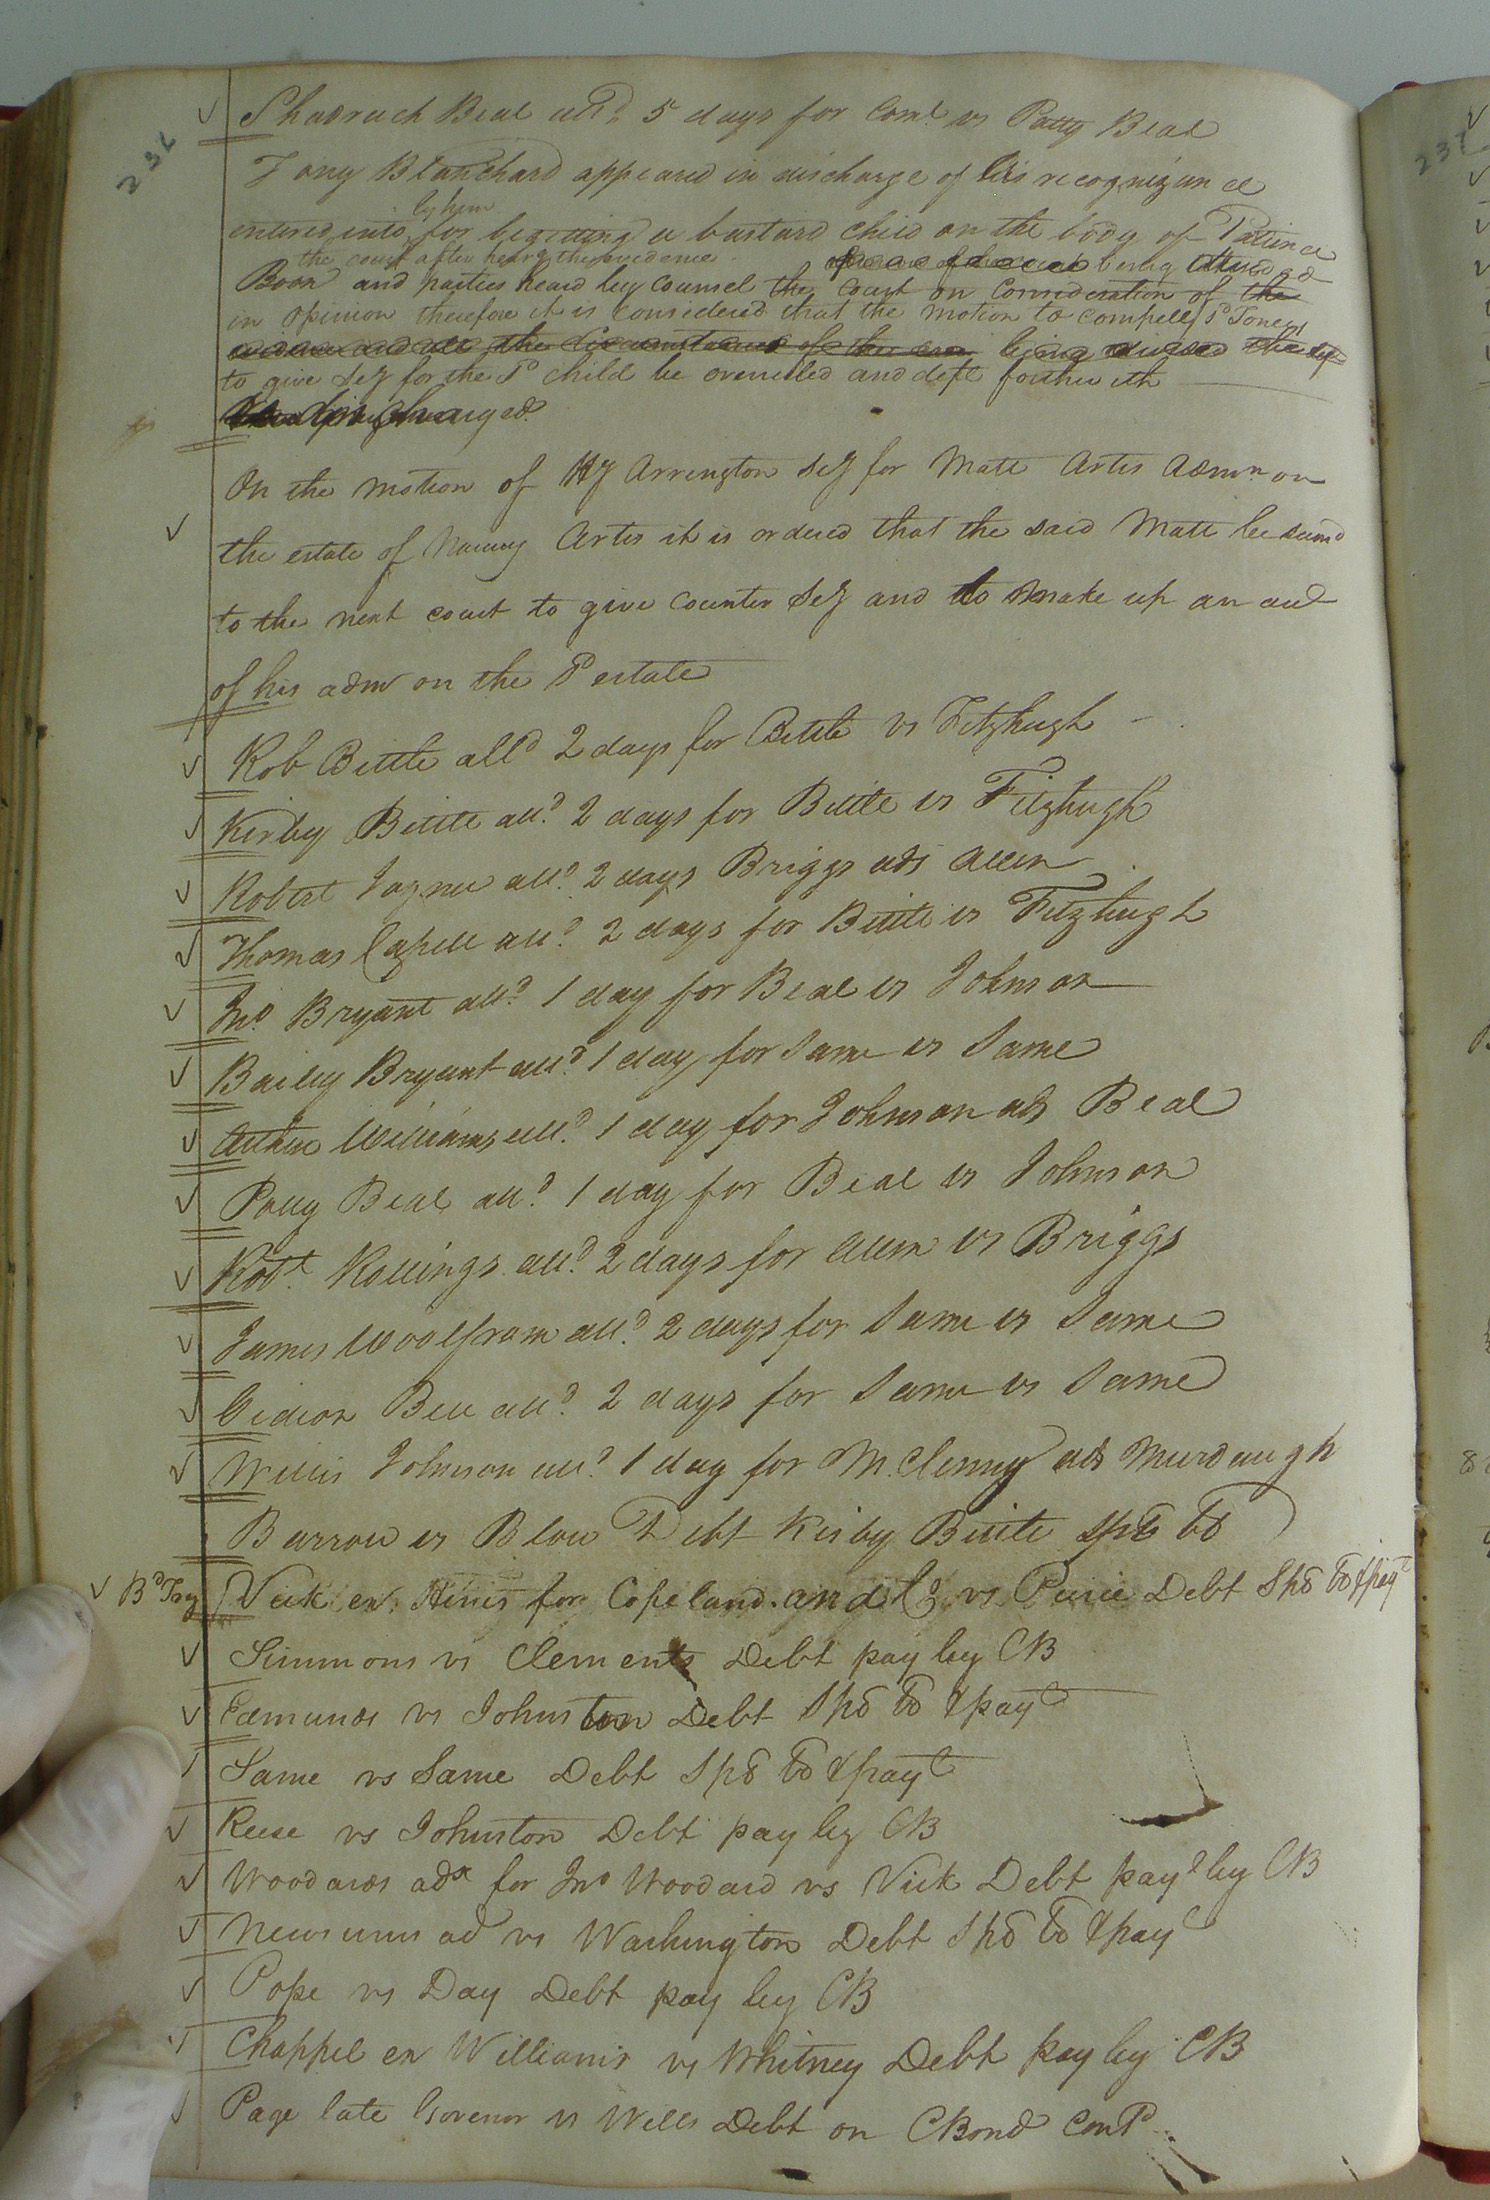 236
Shadrach Beal alld. 5 days for Coml. vs Patty Beal
Tony Blanchard appeared in discharge of his recognizance
by him
entered into for begetting a bastard child on the body of Patience
the court after hearg the evidence
being divided
Boon and parties heard by Counsel the Court on Consideration of the
in opinion therefore it is considered that the motion to compell sd Toney
the circumstances of the case being argued the deft
to give Scy for the sd child be overruled and deft forthwith
discharged.
On the motion of HJ Arrington Scy for Matt Artis Admn. on
the estate of Nanny Artis it is ordered that the said Matt be sumd
to the next court to give Counter Scy and to make up an aut
of his adm on the sd estate
Rob Bittle alld 2 days for Bittle vs Fitzhugh
Kirby Bittle alld. 2 days for Bittle vs Fitzhugh
Robert alld. 2 days Briggs ads Allen
Thomas Capell alld. 2 days for Bittle vs Fitzhugh
Jno. Bryant alld. 1 day for Beal vs Johnson
Bailey Bryant alld. 1 day for Same vs Same
Arthur Williams alld. 1 day for Johnson ads Beal
Polly Beal alld. 1 day for Beal vs Johnson
Robt. Rollings alld. 2 days for Allen vs Briggs
James Woolfram alld. 2 days for Same vs Same
Gideon Bell alld. 2 days for Same vs Same
Willis Johnson alld. 1 day for McClenny ads Murdaugh
Barrow vs Blow Debt Kirby Bittle spb bd
Vick ex. for Copeland and Co vs Purie Debt Spb bd & pay
Simmons vs Clements Debt pay by CB
Edmunds vs Johnston Debt Spb bd & pay
Same vs Same Debt Spb bd & pay
Reese vs Johnston Debt pay by CB
Woodards adx for Jno Woodard vs Vick Debt pay by CB
Newsums ad vs Washington Debt Spb bd & pay
Pope vs Day Debt pay by CB
Chappel ex Williams vs Whitney Debt pay by CB
Page late Governor vs Wells Debt on CBond Contd
237